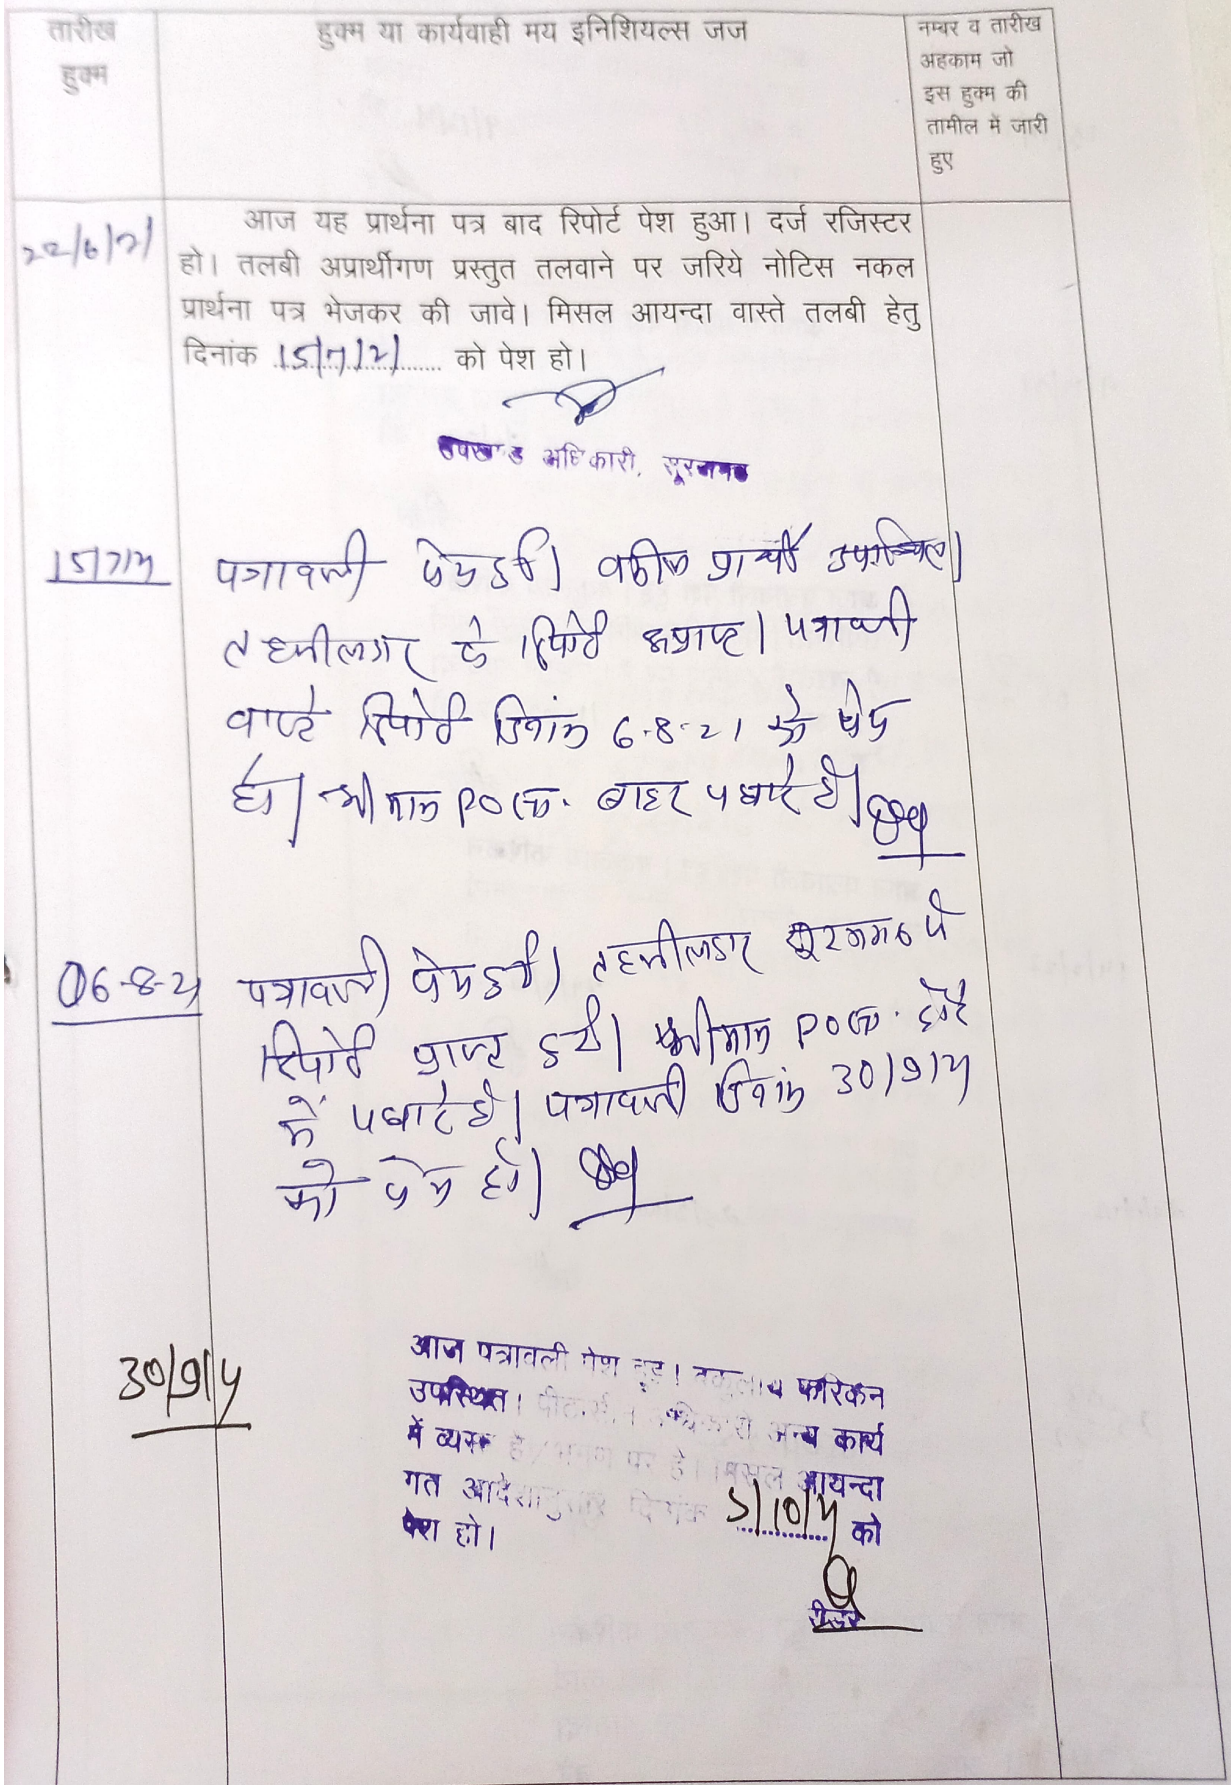 तारीख
हुक्म
हुक्म या कार्यवाही मय इनिशियल्स जज
नम्बर व तारीख
अहकाम जो
इस हुक्म की
तामील में जारी
हुए
22/6/21
आज यह प्रार्थना पत्र बाद रिपोर्ट पेश हुआ। दर्ज रजिस्टर
हो। तलबी अप्रार्थीगण प्रस्तुत तलवाने पर जरिये नोटिस नकल
प्रार्थना पत्र भेजकर की जावे। मिसल आयन्दा वास्ते तलबी हेतु
दिनांक 15/7/21 को पेश हो।
उपखण्ड अधिकारी, सूरजगढ
15/7/21
पत्रावली पेश हुई। वकील प्रार्थी उपस्थित।
तहसीलदार से रिपोर्ट अप्राप्त। पत्रावली
वास्ते रिपोर्ट दिनांक 6-8-21 को पेश
हो। श्रीमान PO सा. बाहर पधारे है।
06-8-21
पत्रावली पेश हुई। तहसीलदार सूरजगढ से
रिपोर्ट प्राप्त हुई। श्रीमान PO सा. दौरे
में पधारे है। पत्रावली दिनांक 30/9/21
को पेश हो।
30/9/21
आज पत्रावली पेश हुई। वकुलाय फरिकेन
उपस्थित। पीठासीन अधिकारी अन्य कार्य
में व्यस्त है/भ्रमण पर है। मिसल आयन्दा
गत आदेशानुसार दिनांक /10/21 को
पेश हो।
रीडर